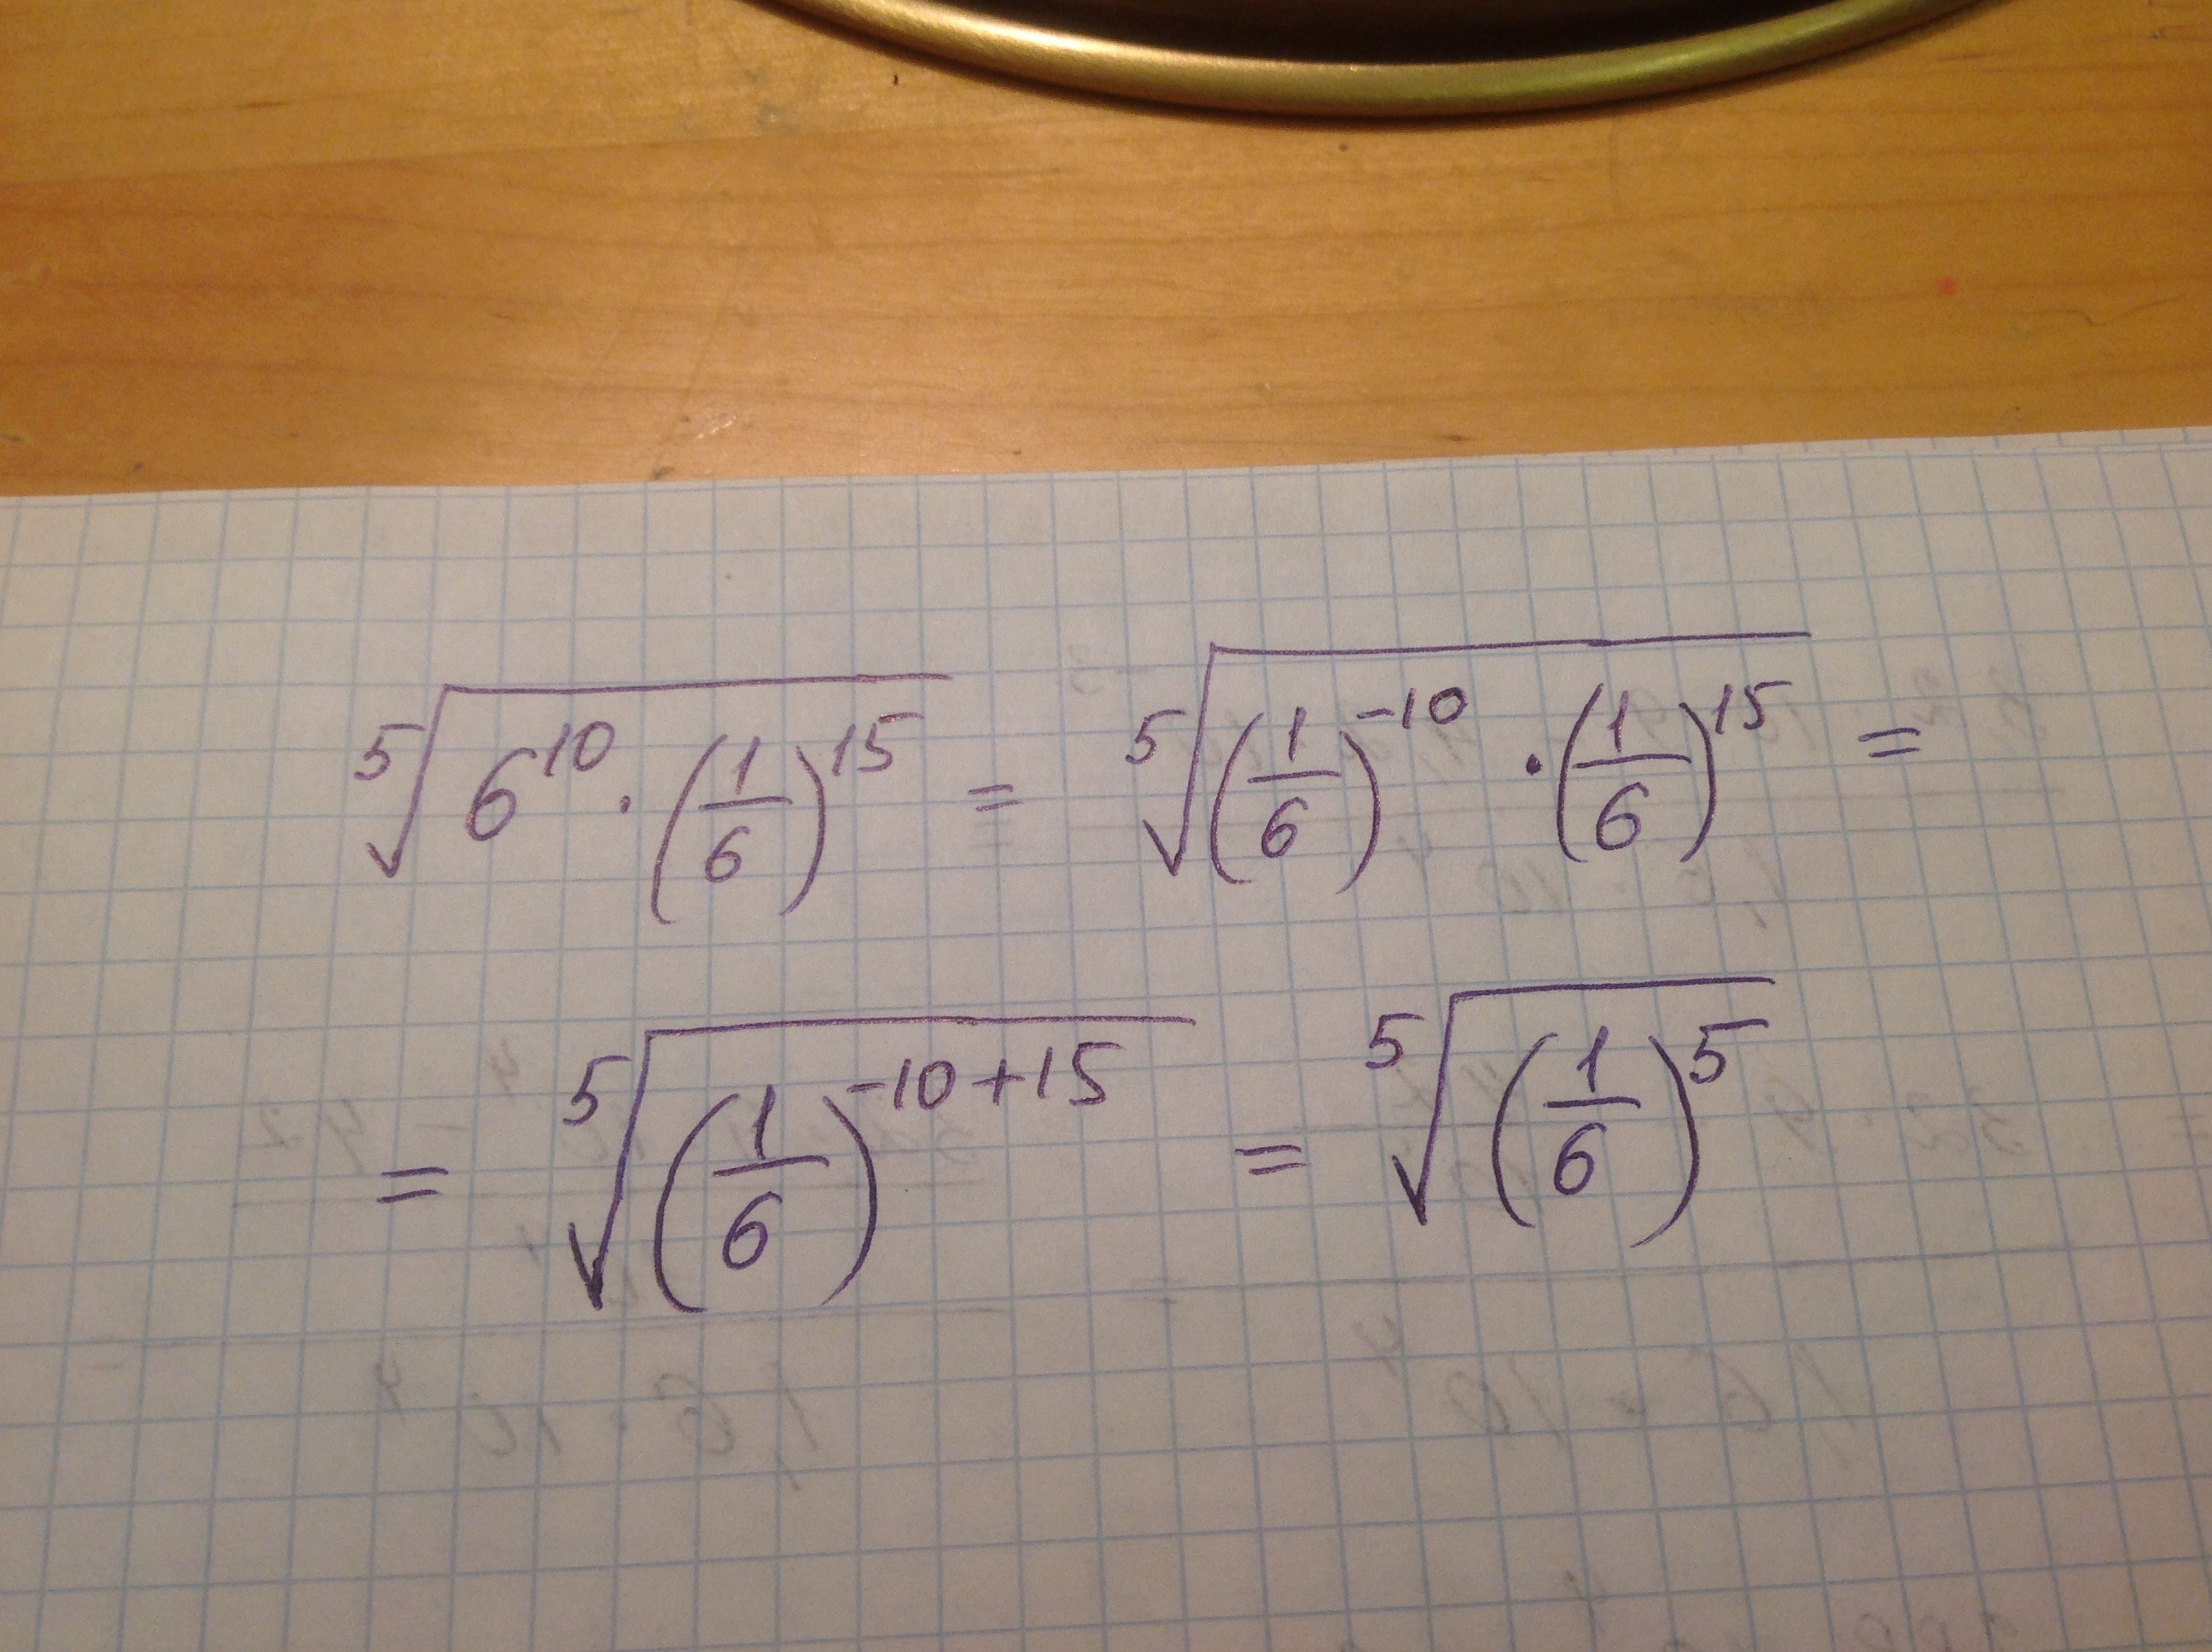 ⁵√(6¹⁰ · (1/6)¹⁵) = ⁵√((1/6)⁻¹⁰ · (1/6)¹⁵) =
= ⁵√((1/6)⁻¹⁰⁺¹⁵) = ⁵√((1/6)⁵)